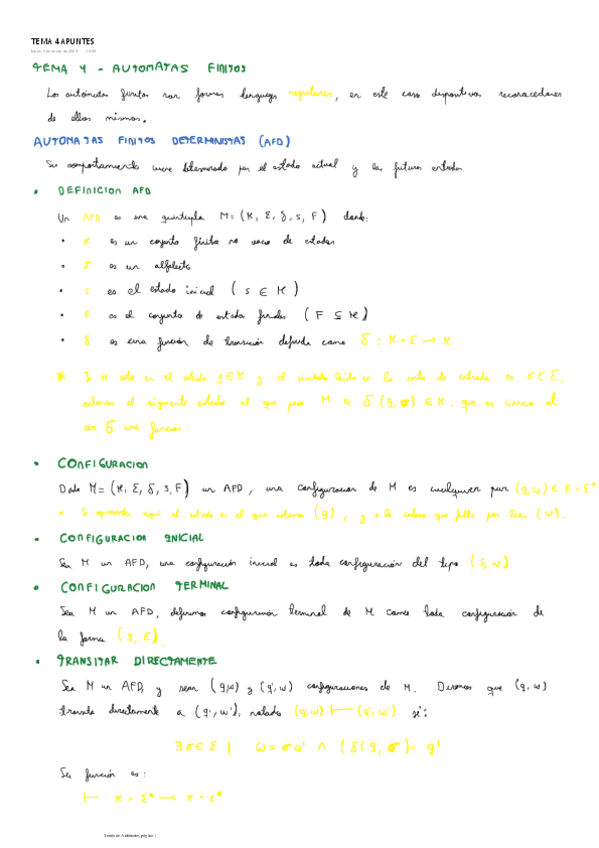 TEMA 4 APUNTES
TEMA 4 - AUTOMATAS FINITOS
Los autómatas finitos son formas lenguajes regulares, en este caso dispositivos reconocedores
de ellos mismos.
AUTOMATAS FINITOS DETERMINISTAS (AFD)
Su comportamiento viene determinado por el estado actual y las futuras entradas.
• DEFINICION AFD
Un AFD es una quíntupla M=(K, Σ, δ, s, F) donde:
• K es un conjunto finito no vacio de estados
• Σ es un alfabeto
• s es el estado inicial (s ∈ K)
• F es el conjunto de estados finales (F ⊆ K)
• δ es una función de transición definida como δ : K × Σ → K
* Si M está en el estado q∈K y el símbolo leído en la cinta de entrada es σ∈Σ,
el siguiente estado al que pasa M es δ(q, σ) ∈ K, que es único al
ser δ una función.
• CONFIGURACION
Dado M=(K, Σ, δ, s, F) un AFD, una configuracion de M es cualquier par (q,ω) ∈ K × Σ*
• Se representa aquí el estado en el que estamos (q), y a la cadena que falta por leer (ω).
• CONFIGURACION INICIAL
Sea M un AFD, una configuración inicial es toda configuración del tipo (s, ω)
• CONFIGURACION TERMINAL
Sea M un AFD, definimos configuración terminal de M como toda configuración de
la forma (q, ε).
• TRANSITAR DIRECTAMENTE
Sea M un AFD, y sean (q,ω) y (q', ω') configuraciones de M. Diremos que (q, ω)
transita directamente a (q', ω'), notados (q,ω) ⊢ (q', ω') si:
∃ σ ∈ Σ | ω = σω' ∧ (δ(q, σ) = q'
Su función es:
⊢ : K × Σ* → K × Σ*